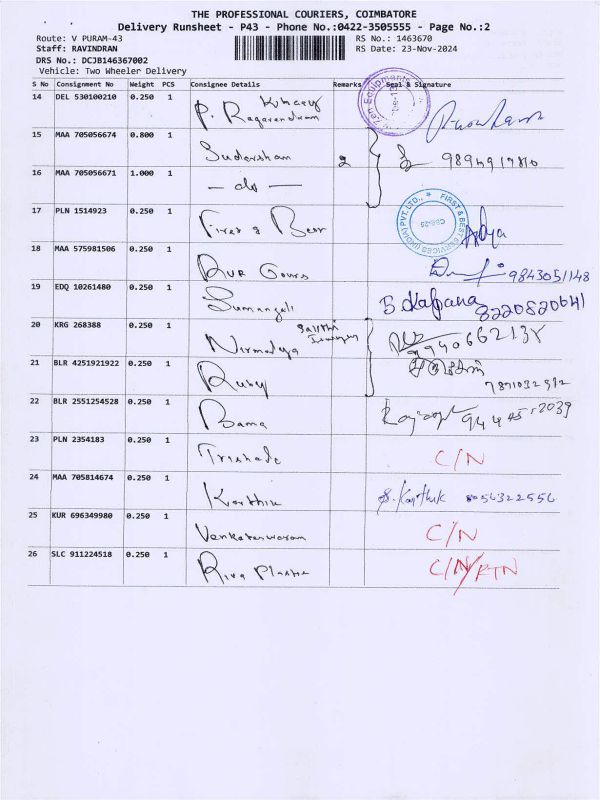 THE PROFESSIONAL COURIERS, COIMBATORE
Delivery Runsheet - P43 - Phone No.:0422-3505555 - Page No.:2
Route: V PURAM-43 RS No.: 1463670
Staff: RAVINDRAN RS Date: 23-Nov-2024
DRS No.: DCJB146367002
Vehicle: Two Wheeler Delivery
S No Consignment No Weight PCS Consignee Details Remarks Seal & Signature
14 DEL 530100210 0.250 1 P. Ragavendram
15 MAA 705056674 0.800 1 Sudarsham 2
16 MAA 705056671 1.000 1 — do —
17 PLN 1514923 0.250 1 First & Best FIRST & BEST SERVICES (INDIA) PVT. LTD., CBE-25
18 MAA 575981506 0.250 1 9843051148
19 EDQ 10261480 0.250 1 Sumangali S. Kalpana 8220820641
20 KRG 268388 0.250 1 Nirmalya
21 BLR 4251921922 0.250 1 Ruby
22 BLR 2551254528 0.250 1 Bama
23 PLN 2354183 0.250 1 C/N
24 MAA 705814674 0.250 1 Karthik S. Karthik 8056322556
25 KUR 696349980 0.250 1 Venkateswaran C/N
26 SLC 911224518 0.250 1 C/N/RTN